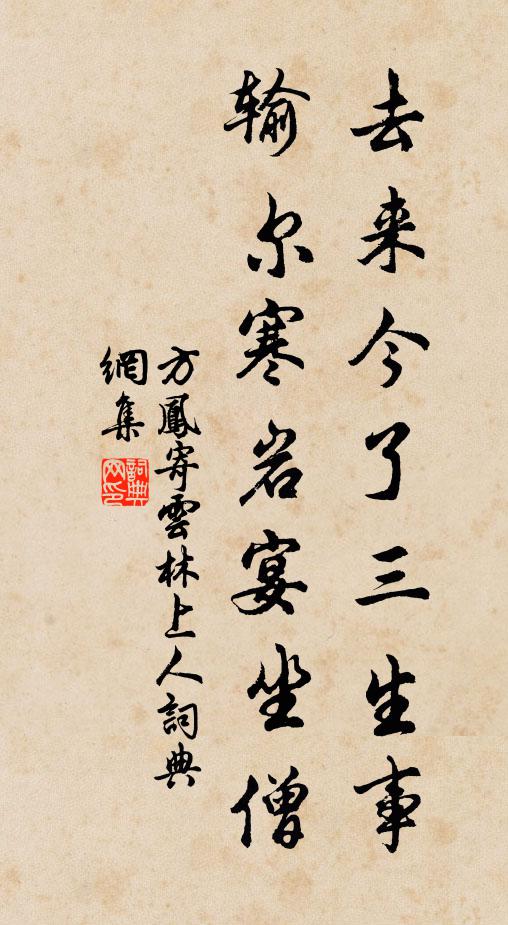 去来今了三生事
输尔寒岩宴坐僧
方鳳寄雲林上人詞典
網集
詞典
网印